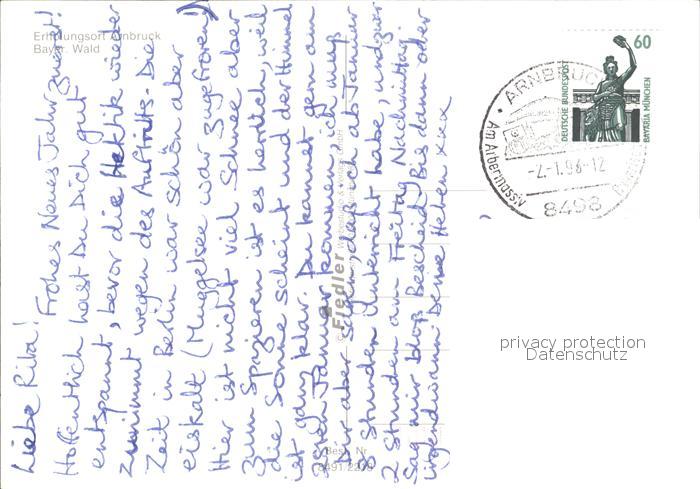 Erholungsort Arnbruck
Bayer. Wald
Liebe Rita!
Frohes Neues Jahr zuerst!
Hoffentlich hast Du Dich gut
entspannt, bevor die Hektik wieder
zunimmt wegen des Auftritts. Die
Zeit in Berlin war schön aber
eiskalt (Müggelsee war zugefroren!)
Hier ist nicht viel Schnee aber
zum Spazieren ist es herrlich, weil
die Sonne scheint und der Himmel
ist ganz klar. Du kannst gern am
Januar kommen, ich muss
Dir aber sagen, dass ich ab Januar
3 Stunden Unterricht habe, und zwar
2 Stunden am Freitag Nachmittag.
Sag mir bloß Bescheid! Bis dann oder
irgendwann Deine Helen xxx
Fiedler
Best. Nr.
60
DEUTSCHE BUNDESPOST
BAVARIA MÜNCHEN
ARNBRUCK
Am Arbermassiv
-2.-1.98-12
8498
privacy protection
Datenschutz